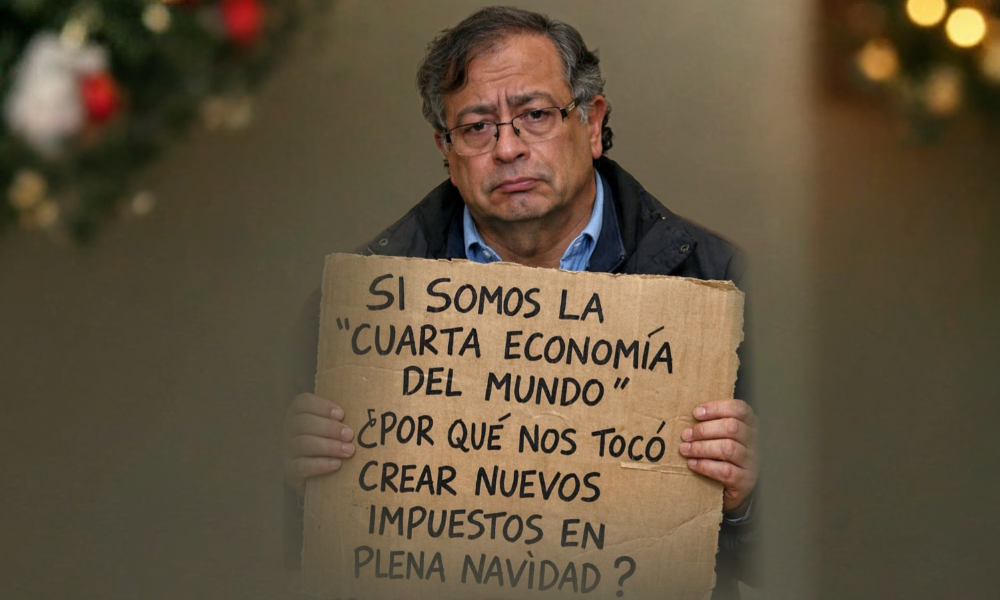 SI SOMOS LA
"CUARTA ECONOMÍA
DEL MUNDO"
¿POR QUÉ NOS TOCÓ
CREAR NUEVOS
IMPUESTOS EN
PLENA NAVÌDAD?